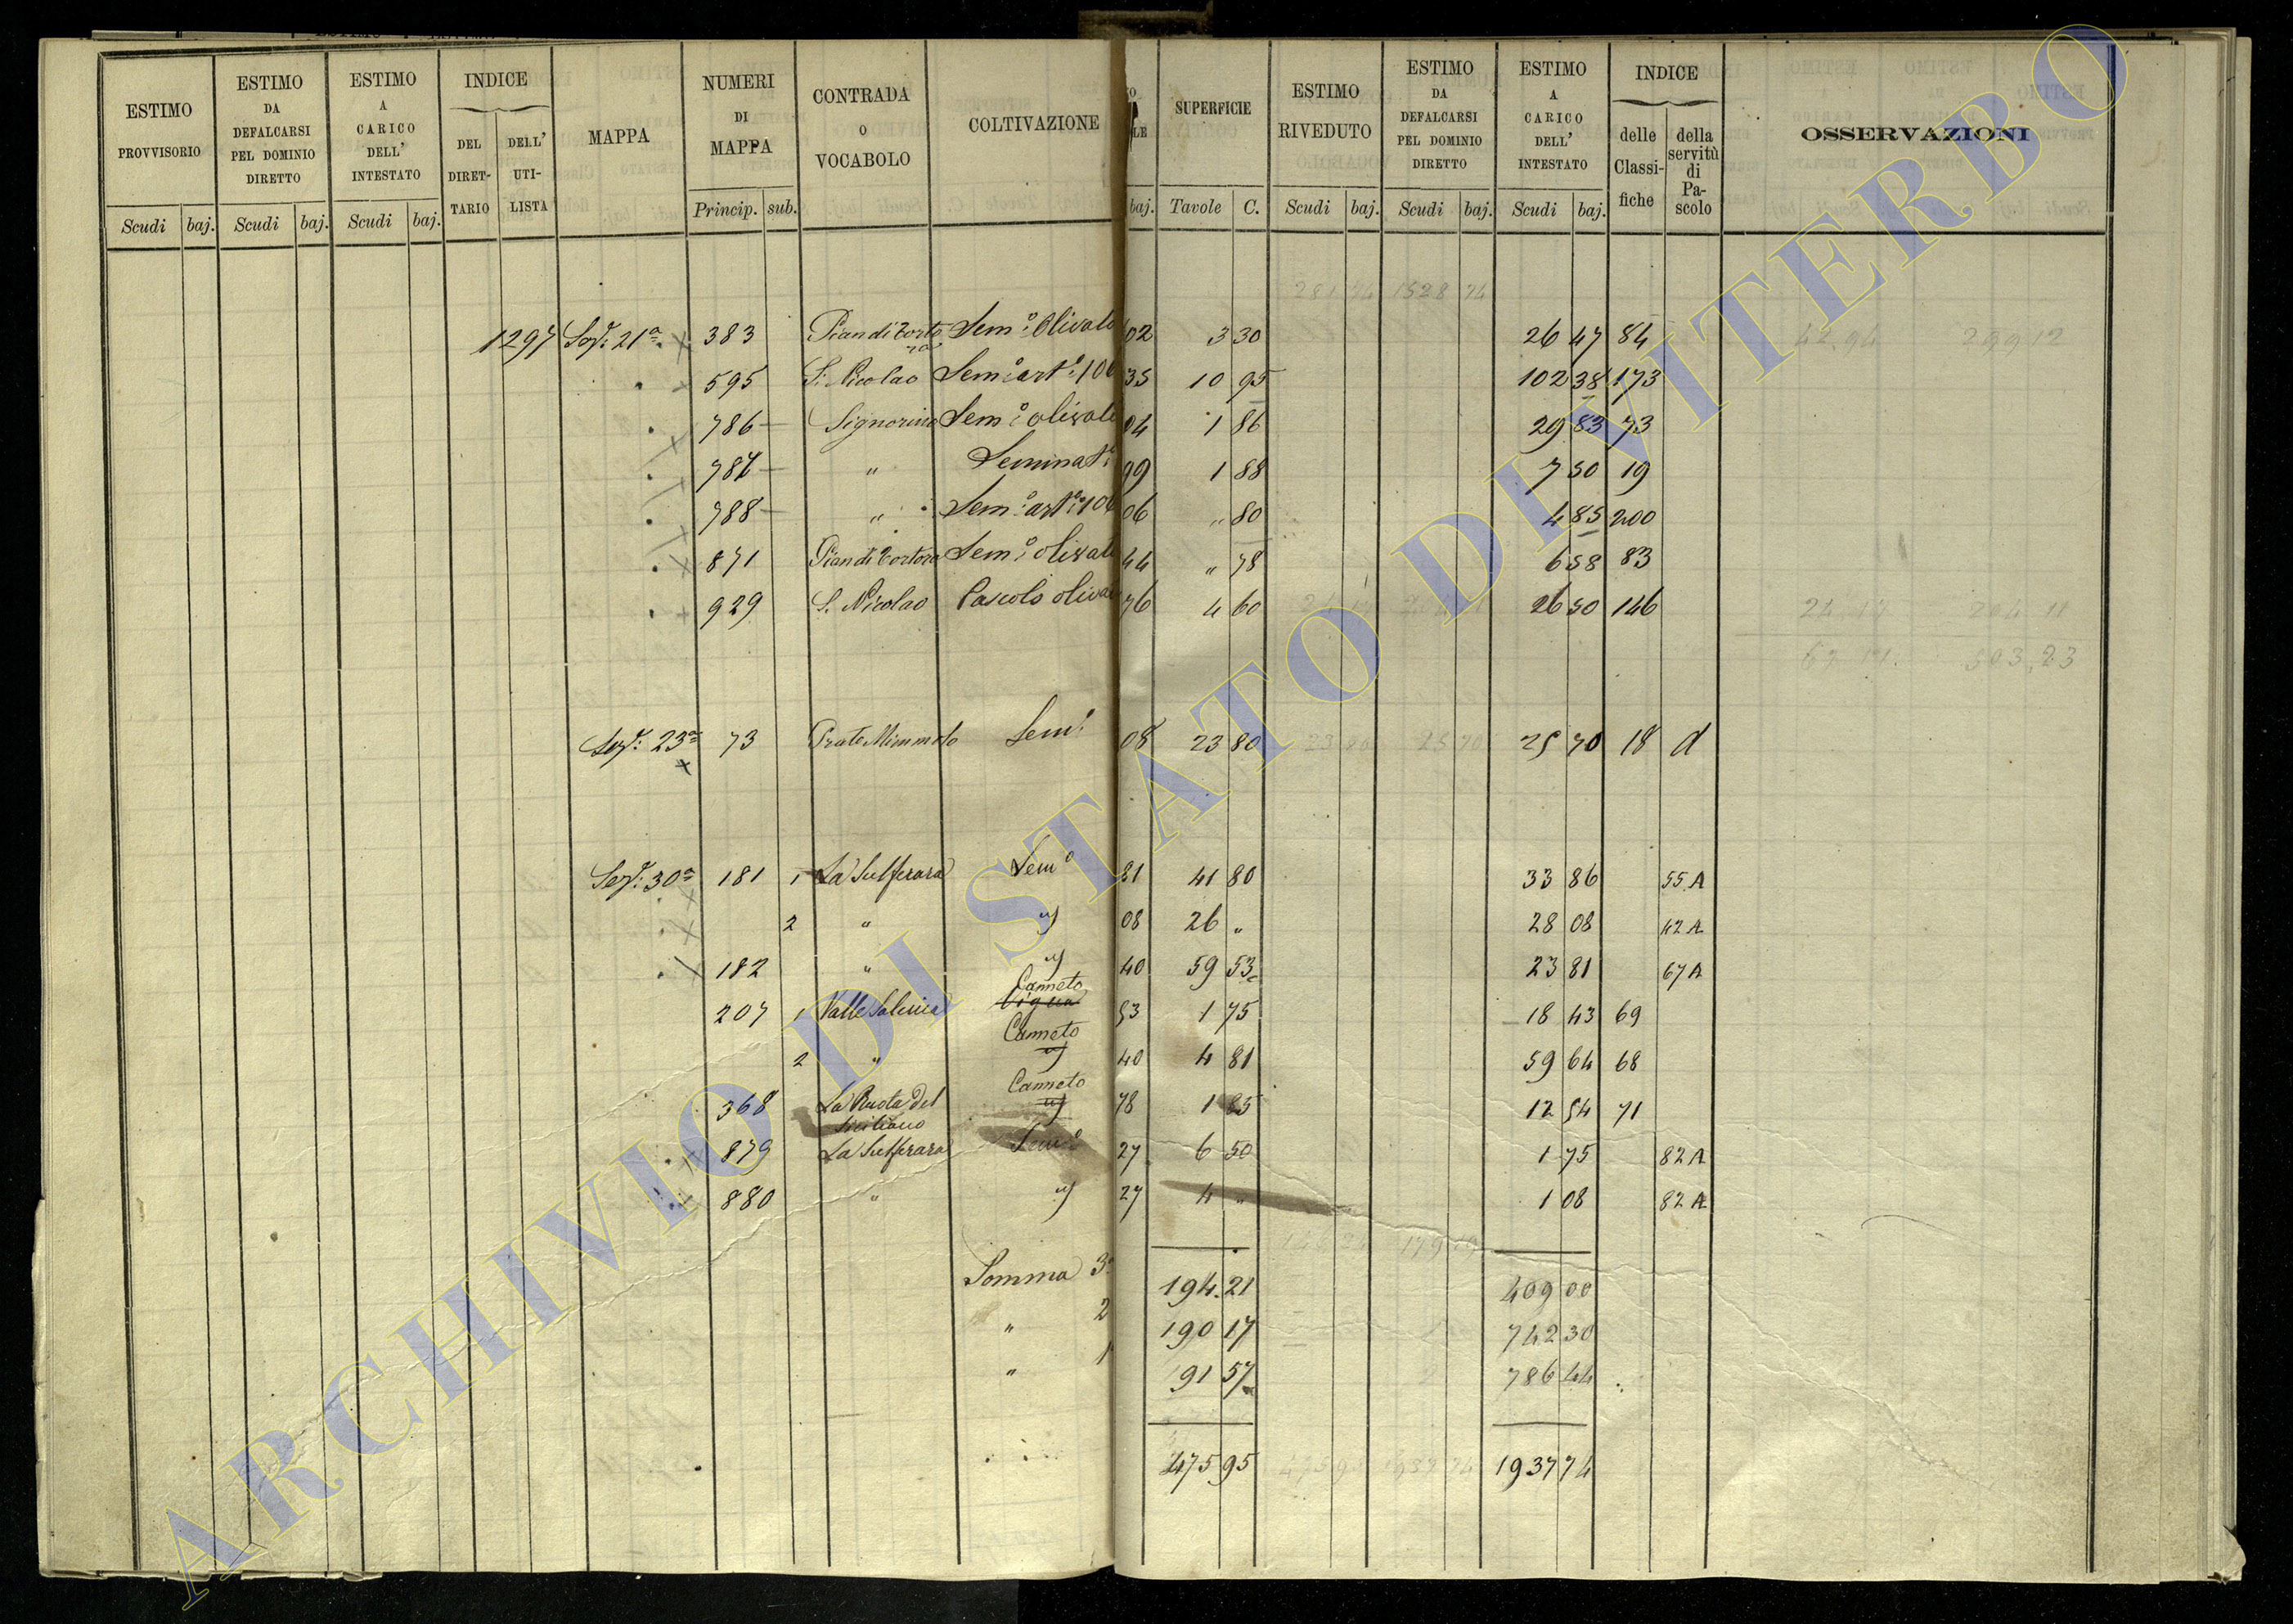 ESTIMO PROVVISORIO Scudi baj.
ESTIMO DA DEFALCARSI PEL DOMINIO DIRETTO Scudi baj.
ESTIMO A CARICO DELL' INTESTATO Scudi baj.
INDICE DEL DIRET-TARIO DELL' UTI-LISTA
MAPPA
NUMERI DI MAPPA Princip. sub.
CONTRADA O VOCABOLO
COLTIVAZIONE
baj.
SUPERFICIE Tavole C.
ESTIMO RIVEDUTO Scudi baj.
ESTIMO DA DEFALCARSI PEL DOMINIO DIRETTO Scudi baj.
ESTIMO A CARICO DELL' INTESTATO Scudi baj.
INDICE delle Classi-fiche della servitù di Pa-scolo
OSSERVAZIONI
281 94 1528 74
1297 Sez: 21a x 383 Pian di Tortora Sem:o Olivato 02 3 30 26 47 84 42.94 299 12
595 S. Nicolao Sem:o art:o 106 35 10 95 102 38 173
786 Signorino Sem:o olivato 04 1 86 29 83 73
787 " Seminat:o 99 1 88 7 50 19
788 " Sem:o art:o 106 06 " 80 4 85 200
871 Pian di Tortora Sem:o olivato 44 " 78 6 58 83
929 S. Nicolao Pascolo olivato 76 4 60 26 50 146 24 17 204 11
503,23
Sez: 23a x 73 Prate Mimmolo Sem:o 08 23 80 23 80 25 70 25 70 18 d
Sez: 30a 181 1 La Sulferara Sem:o 81 41 80 33 86 55 A
2 " " 08 26 " 28 08 42 A
182 " " 40 59 53 23 81 67 A
Canneto
207 1 Valle Salina Vigna 53 1 75 18 43 69
Canneto
2 " " 40 4 81 59 64 68
Canneto
368 La Ruota del Siciliano " 78 1 85 12 54 71
879 La Sulferara Sem:o 27 6 50 1 75 82 A
880 " " 27 4 " 1 08 82 A
Somma 3a 194.21 409 00
" 2 190 17 742 30
" 1 91 57 786 44
475 95 1937 74
ARCHIVIO DI STATO DI VITERBO